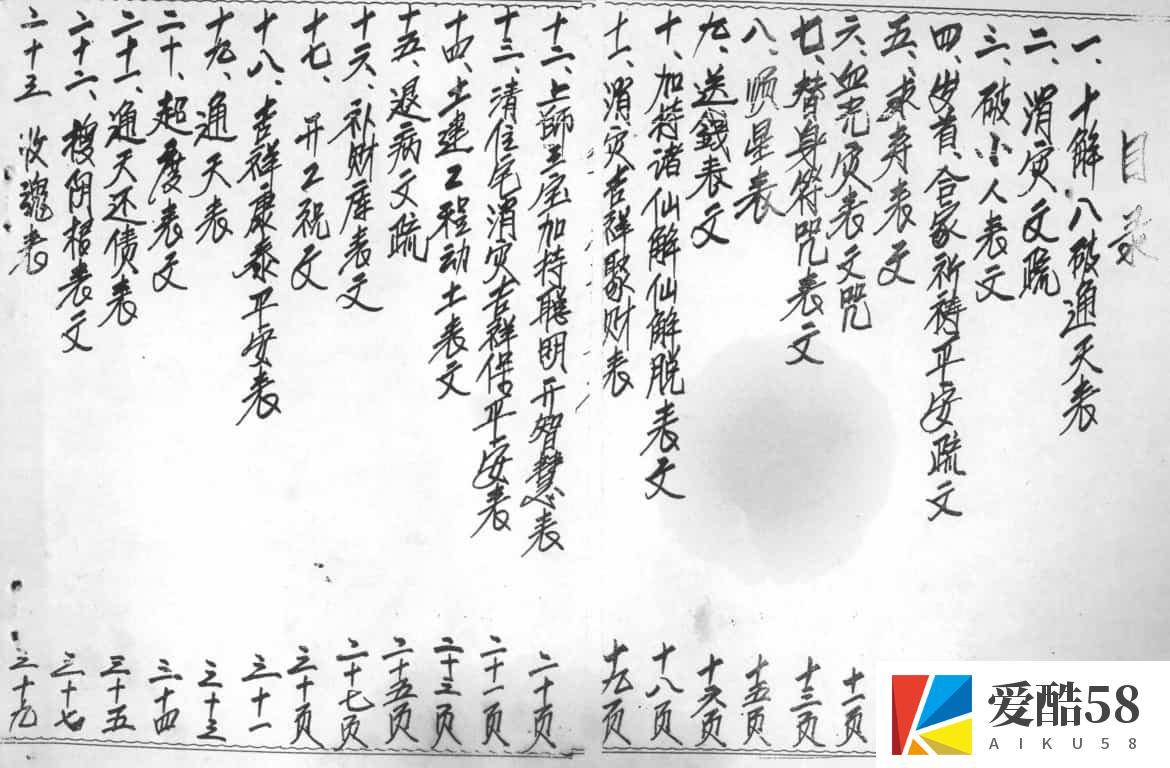 目录
一、十解八破通天表
二、消灾文疏
三、破小人表文
四、岁首、合家祈祷平安疏文
五、求寿表文
六、血光灾表文咒 十一页
七、替身符咒表文 十三页
八、顺星表 十五页
九、送錢表文 十六页
十、加持诸仙解仙解脱表文 十八页
十一、消灾吉祥聚财表 十九页
十二、上師三宝加持聪明开智慧表 二十页
十三、清住宅消灾吉祥保平安表 二十一页
十四、土建工程动土表文 二十三页
十五、退病文疏 二十五页
十六、补财库表文 二十七页
十七、开工祝文 三十页
十八、吉祥康泰平安表 三十一
十九、通天表 三十三
二十、超度表文 三十四
二十一、通天还债表 三十五
二十二、拨阴招表文 三十七
二十三 收魂表 三十九
爱酷58
AIKU58